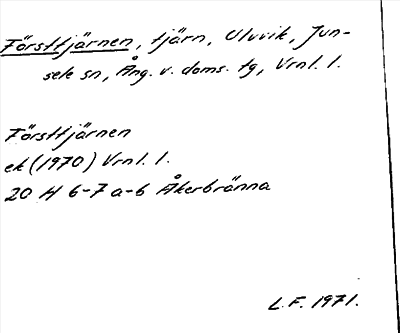 Försttjärnen, tjärn, Uluvik, Jun-
sele sn, Ång. v. doms. tg, Vrnl. l.
Försttjärnen
ek (1970) Vrnl. l.
20 H 6-7 a-b Åkerbränna
L.F. 1971.